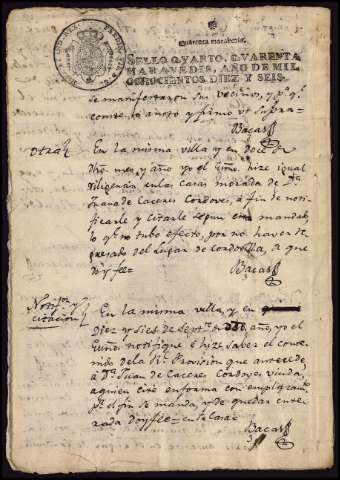 Quarenta maravedis.
SELLO QVARTO, QVARENTA
MARAVEDIS, AÑO DE MIL
OCHOCIENTOS DIEZ Y SEIS.
se manifestaron sus vecinos, y pª qᵉ
conste lo anoto y firmo ut supra=
Bacas
Otra
En la misma villa y en doce de
dho mes, y año yo el Essno. hize igual
diligencia en las casas morada de Dª
Juana de Caceres Cordoves, á fin de noti-
ficarle y citarle segun esta mandado,
lo qᵉ no tubo efecto, por no haver re-
gresado del Lugar de Cordovilla, de que
doy fee=
Bacas
Notifon. y
citacion
En la misma villa, y en
Diez y Siete de Septᵉ de dho año, yo el
Essno notifiqué é hize saber el conte-
nido de la Rˡ Provision que antecede
á Dª Juana de Caceres Cordoves viuda,
aquien cité en forma con emplazamᵗᵒ
pª el fin se manda, y de quedar ente-
rada doy fee= en la casa=
Bacas